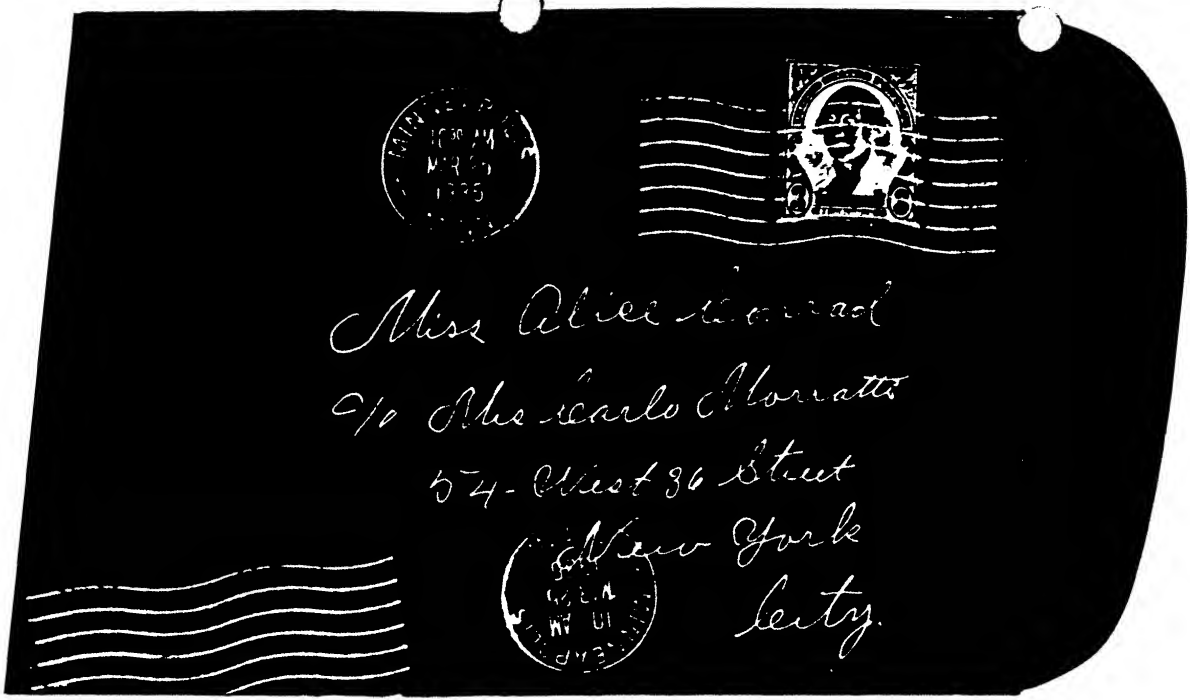 MINNEAPOLIS
10 30 AM
MAR 25
1935
3 3
Miss Alice Conrad
c/o Mrs Carlo Morratto
54 - West 36 Street
New York
City.
10 AM